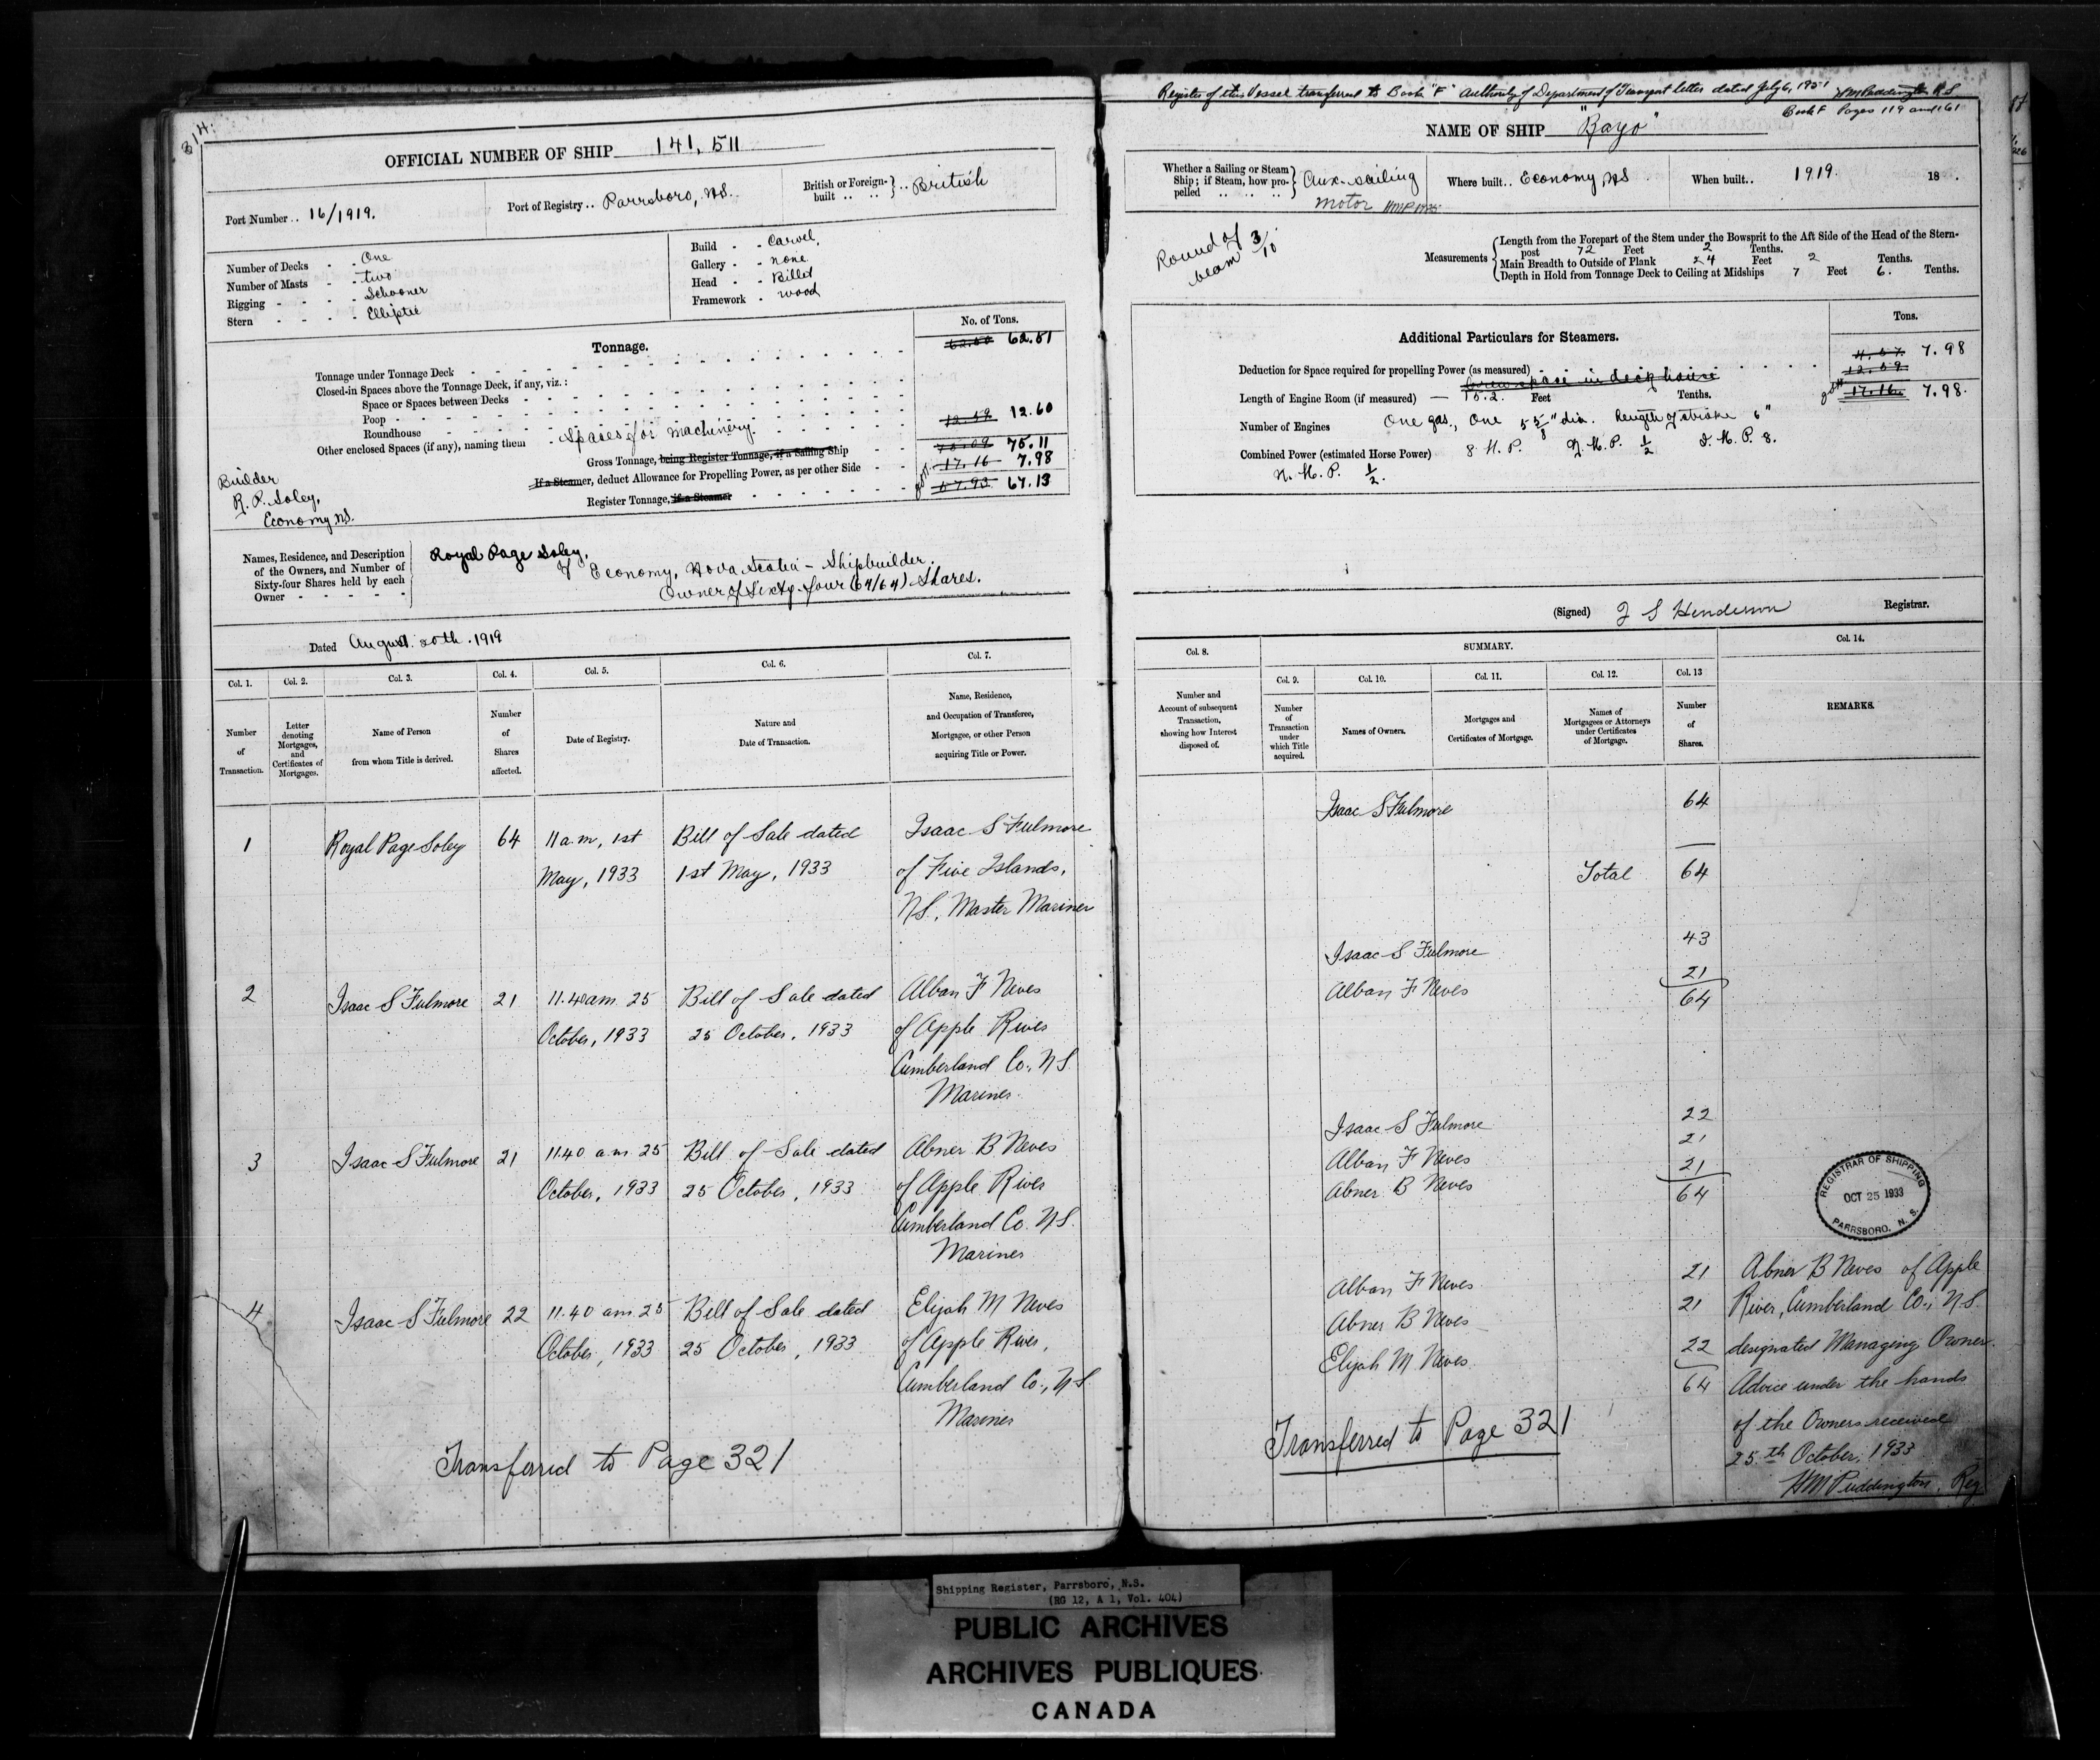 314.
OFFICIAL NUMBER OF SHIP 141,511
Port Number .. 16/1919.
Port of Registry .. Parrsboro, NS.
British or Foreign-built .. .. } .. British
Number of Decks - - One
Number of Masts - - two
Rigging - - - - Schooner
Stern - - - - Elliptic
Build - - Carvel.
Gallery - - none
Head - - Billet
Framework - wood
Tonnage.
No. of Tons.
Tonnage under Tonnage Deck 62.51
Closed-in Spaces above the Tonnage Deck, if any, viz.:
Space or Spaces between Decks
Poop
Roundhouse
Other enclosed Spaces (if any), naming them Spaces for machinery. 12.59 12.60
Gross Tonnage, being Register Tonnage, if a Sailing Ship 75.09 75.11
If a Steamer, deduct Allowance for Propelling Power, as per other Side 17.16 7.98
Register Tonnage, if a Steamer 57.93 67.13
Builder
R. P. Soley,
Economy NS.
Names, Residence, and Description of the Owners, and Number of Sixty-four Shares held by each Owner
Royal Page Soley,
of Economy, Nova Scotia - Shipbuilder.
Owner of Sixty-four (64/64) Shares.
Dated August 20th. 1919
Col. 1. Col. 2. Col. 3. Col. 4. Col. 5. Col. 6. Col. 7.
Number of Transaction.
Letter denoting Mortgages, and Certificates of Mortgages.
Name of Person from whom Title is derived.
Number of Shares affected.
Date of Registry.
Nature and Date of Transaction.
Name, Residence, and Occupation of Transferee, Mortgagee, or other Person acquiring Title or Power.
1 Royal Page Soley 64 11 a.m, 1st Bill of Sale dated Isaac S Fulmore
May, 1933 1st May, 1933 of Five Islands,
NS., Master Mariner
2 Isaac S Fulmore 21 11.40am. 25 Bill of Sale dated Alban F Neves
October, 1933 25 October, 1933 of Apple River
Cumberland Co., NS.
Mariner.
3 Isaac S Fulmore 21 11.40 a.m. 25 Bill of Sale dated Abner B Neves
October, 1933 25 October, 1933 of Apple River
Cumberland Co. NS.
Mariner
4 Isaac S Fulmore 22 11.40 am. 25 Bill of Sale dated Elijah M Neves
October, 1933 25 October, 1933 of Apple River,
Cumberland Co., NS
Mariner
Transferred to Page 321
Register of this Vessel transferred to Book "F" authority of Department of Transport letter dated July 6, 1951 HM Puddington R.S.
Book F Pages 119 and 161
NAME OF SHIP "Rayo"
Whether a Sailing or Steam Ship; if Steam, how propelled .. .. .. } Aux-sailing
motor
Where built .. Economy, NS
When built .. 1919. 18 .
Round of beam 3/10
Measurements
Length from the Forepart of the Stem under the Bowsprit to the Aft Side of the Head of the Stern-post 72 Feet 2 Tenths.
Main Breadth to Outside of Plank 24 Feet 2 Tenths.
Depth in Hold from Tonnage Deck to Ceiling at Midships 7 Feet 6. Tenths.
Additional Particulars for Steamers.
Tons.
Deduction for Space required for propelling Power (as measured) 4.57 7.98
Screw space in deck house 12.59
Length of Engine Room (if measured) — 15.2. Feet Tenths. 17.16 7.98.
Number of Engines One gas., One 5 5/8" dia. length of stroke 6"
Combined Power (estimated Horse Power) 8 H.P. N.H.P. 1/2 I.H.P. 8.
N.H.P. 1/2.
(Signed) J S Henderson Registrar.
Col. 8. SUMMARY. Col. 14.
Col. 9. Col. 10. Col. 11. Col. 12. Col. 13
Number and Account of subsequent Transaction, showing how Interest disposed of.
Number of Transaction under which Title acquired.
Names of Owners.
Mortgages and Certificates of Mortgage.
Names of Mortgagees or Attorneys under Certificates of Mortgage.
Number of Shares.
REMARKS.
Isaac S Fulmore 64
Total 64
Isaac S Fulmore 43
Alban F Neves 21
64
Isaac S Fulmore 22
Alban F Neves 21
Abner B Neves 21
64
REGISTRAR OF SHIPPING
OCT 25 1933
PARRSBORO, N. S.
Alban F Neves 21
Abner B Neves 21
Elijah M Neves 22
64
Abner B Neves of Apple
River, Cumberland Co., NS.
designated Managing Owner.
Advice under the hands
of the Owners received
25th October, 1933
HM Puddington, Reg
Transferred to Page 321
Shipping Register, Parrsboro, N.S.
(RG 12, A 1, Vol. 404)
PUBLIC ARCHIVES
ARCHIVES PUBLIQUES
CANADA